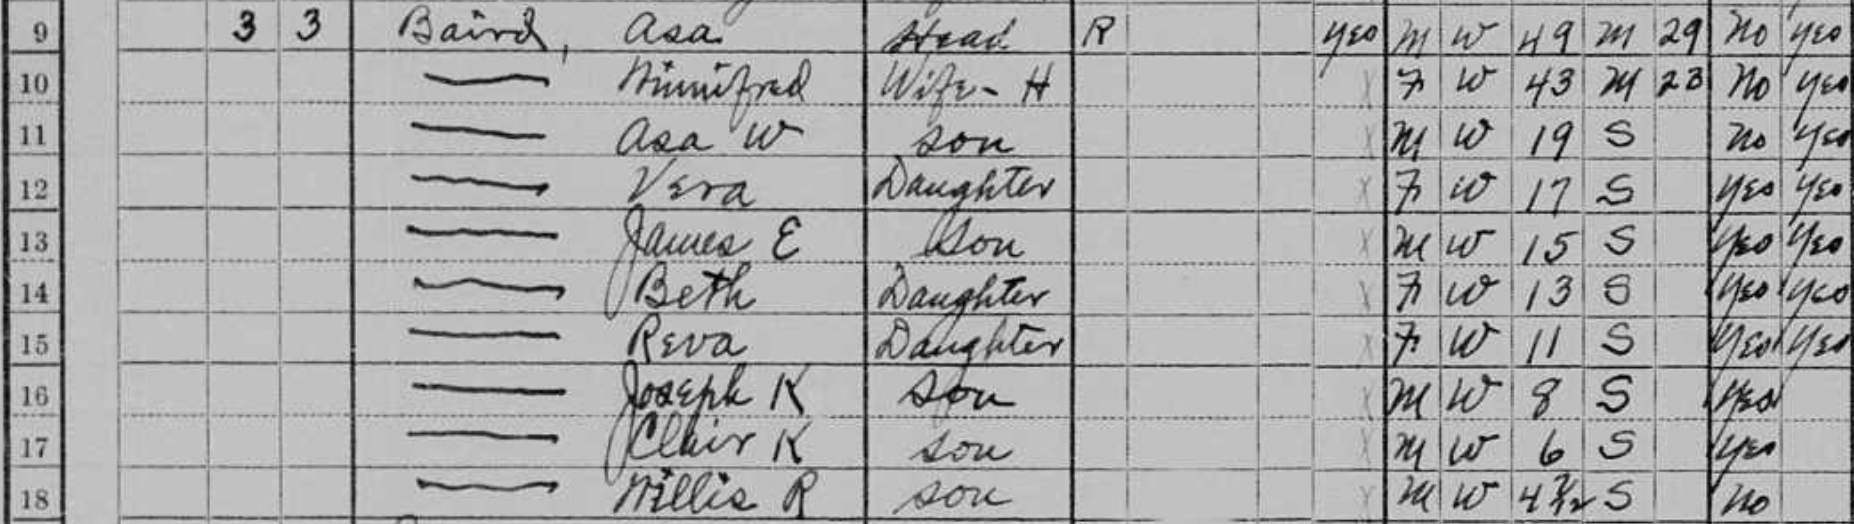 9 3 3 Baird, Asa Head R yes M W 49 M 29 No yes
10 — Winnifred Wife - H X F W 43 M 23 No yes
11 — Asa W son X M W 19 S no yes
12 — Vera Daughter X F W 17 S yes yes
13 — James E Son X M W 15 S yes yes
14 — Beth Daughter X F W 13 S yes yes
15 — Reva Daughter X F W 11 S yes yes
16 — Joseph K son M W 8 S yes
17 — Clair K son X M W 6 S yes
18 — Willis R son X M W S no